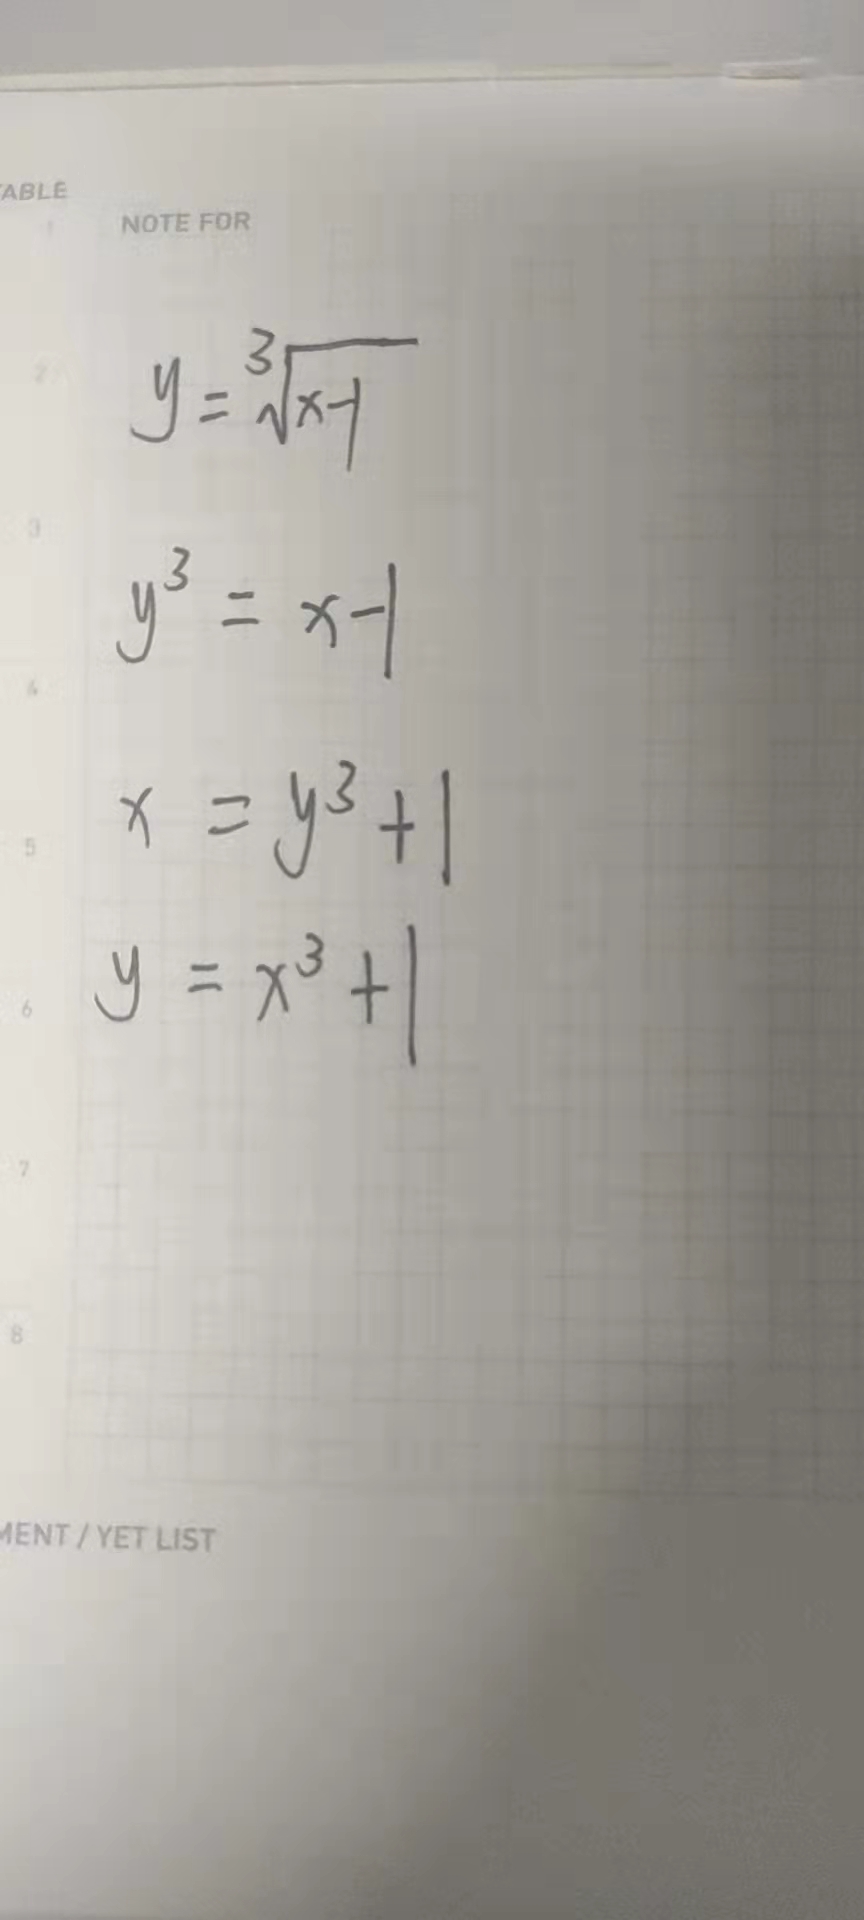 TABLE
NOTE FOR
1
2
y = ³√x-1
3
y³ = x-1
4
x = y³ + 1
5
y = x³ + 1
6
7
8
MENT / YET LIST